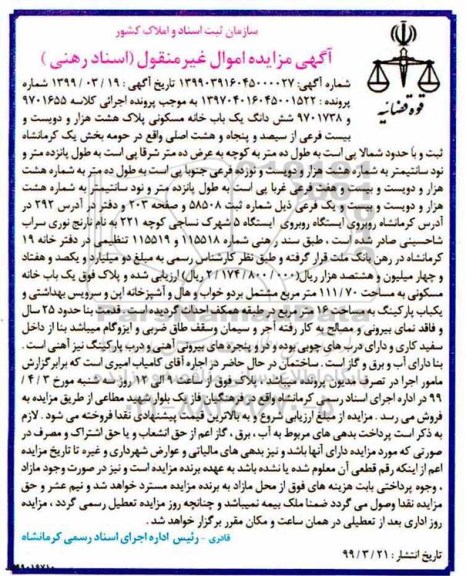 سازمان ثبت اسناد و املاک کشور
آگهی مزایده اموال غیر منقول (اسناد رهنی)
قوه قضائیه
شماره آگهی: ۱۳۹۹۰۳۹۱۶۰۴۵۰۰۰۰۲۷ تاریخ آگهی: ۱۳۹۹/۰۳/۱۹ شماره
پرونده: ۱۳۹۷۰۴۰۱۶۰۴۵۰۰۱۵۲۲ به موجب پرونده اجرائی کلاسه ۹۷۰۱۶۵۵
و ۹۷۰۱۷۳۸ شش دانگ یک باب خانه مسکونی پلاک هشت هزار و دویست و
بیست فرعی از سیصد و پنجاه و هشت اصلی واقع در حومه بخش یک کرمانشاه
ثبت و با حدود شمالا پی است به طول ده متر به کوچه به عرض ده متر شرقا پی است به طول پانزده متر و
نود سانتیمتر به شماره هشت هزار و دویست و نوزده فرعی جنوبا پی است به طول ده متر به شماره هشت
هزار و دویست و بیست و هفت فرعی غربا پی است به طول پانزده متر و نود سانتیمتر به شماره هشت
هزار و دویست و بیست و یک فرعی ذیل شماره ثبت ۵۸۵۰۸ و صفحه ۲۰۳ و دفتر در آدرس ۲۹۲ در
آدرس کرمانشاه روبروی ایستگاه روبروی ایستگاه ۵ شهرک نساجی کوچه ۲۲۱ به نام نارنج نوری سراب
شاحسینی صادر شده است، طبق سند رهنی شماره ۱۱۵۵۱۸ و ۱۱۵۵۱۹ تنظیمی در دفتر خانه ۱۹
کرمانشاه در رهن بانک ملت قرار گرفته و طبق نظر کارشناس رسمی به مبلغ دو میلیارد و یکصد و هفتاد
و چهار میلیون و هشتصد هزار ریال (۲/۱۷۴/۸۰۰/۰۰۰ ریال) ارزیابی شده و پلاک فوق یک باب خانه
مسکونی به مساحت ۱۱۱/۷۰ متر مربع مشتمل بر دو خواب و هال و آشپزخانه اپن و سرویس بهداشتی و
یکباب پارکینگ به مساحت ۱۶ متر مربع در طبقه همکف احداث گردیده با قدمت بنا حدود ۲۵ سال
و فاقد نمای بیرونی و مصالح به کار رفته آجر و سیمان و سقف طاق ضربی و ایزوگام میباشد بنا از داخل
سفید کاری و دارای درب های چوبی بوده و در و پنجره های بیرونی آهنی و درب پارکینگ نیز آهنی است.
بنا دارای آب و برق و گاز است. ساختمان در حال حاضر در اجاره آقای کامیاب امیری است که برابر گزارش
مامور اجرا در تصرف مدیون پرونده میباشد. پلاک فوق از ساعت ۹ الی ۱۲ روز سه شنبه مورخ ۴/۳/
۹۹ در اداره اجرای اسناد رسمی کرمانشاه واقع در فرهنگیان فاز یک بلوار شهید مطاعی از طریق مزایده به
فروش می رسد. مزایده از مبلغ ارزیابی شروع و به بالاترین قیمت پیشنهادی نقدا فروخته می شود. لازم
به ذکر است پرداخت بدهی های مربوط به آب، برق، گاز اعم از حق انشعاب و یا حق اشتراک و مصرف در
صورتی که مورد مزایده دارای آنها باشد و نیز بدهی های مالیاتی و عوارض شهرداری و غیره تا تاریخ مزایده
اعم از اینکه رقم قطعی آن معلوم شده یا نشده باشد به عهده برنده مزایده است و نیز در صورت وجود مازاد
، وجوه پرداختی بابت هزینه های فوق از محل مازاد به برنده مزایده مسترد خواهد شد و نیم عشر و حق
مزایده نقدا وصول می گردد ضمنا ملک بیمه نمیباشد و چنانچه روز مزایده تعطیل رسمی گردد، مزایده
روز اداری بعد از تعطیلی در همان ساعت و مکان مقرر برگزار خواهد شد.
قادری - رئیس اداره اجرای اسناد رسمی کرمانشاه
تاریخ انتشار: ۹۹/۳/۲۱